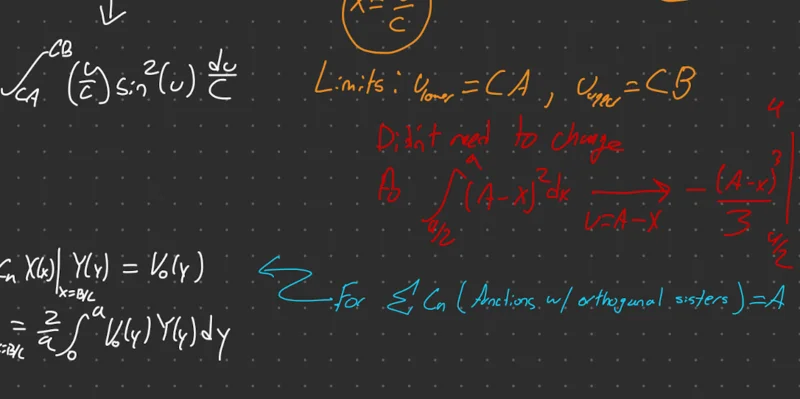 x = u/C
∫_{CA}^{CB} (u/C) sin²(u) du/C
Limits: u_lower = CA, u_upper = CB
Didn't need to change
∫_{a/2}^{a} (A-x)² dx → u=A-x -(A-x)³/3 |
Cn X(x)|_{x=B/C} Y(y) = V₀(y)
x=B/C = 2/a ∫_0^a V₀(y) Y(y) dy
For Σ Cn (functions w/ orthogonal sisters) = A